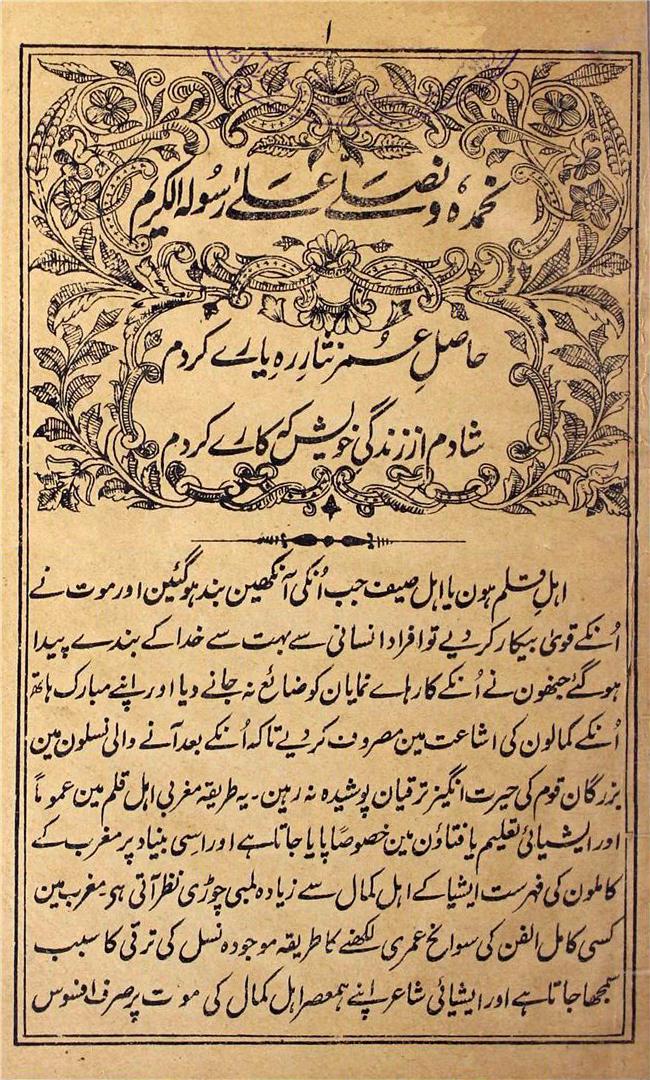 ۱
نحمدہ و نصلے علےٰ رسولہ الکریم
حاصلِ عمر نثارِ رہِ یارے کردم
شادم از زندگیٔ خویش کہ کارے کردم
اہلِ قلم ہون یا اہل صیف جب اُنکی آنکھین بند ہوگئین اور موت نے
اُنکے قویٰ بیکار کر دیے تو افراد انسانی سے بہت سے خدا کے بندے پیدا
ہوگئے جنھون نے اُنکے کارہاے نمایان کو ضائع نہ جانے دیا اور اپنے مبارک ہاتھ
اُنکے کمالون کی اشاعت مین مصروف کر دیے تاکہ اُنکے بعد آنے والی نسلون مین
بزرگان قوم کی حیرت انگیز ترقیان پوشیدہ نہ رہین۔ یہ طریقہ مغربی اہل قلم مین عموماً
اور ایشیائی تعلیم یافتاؤن مین خصوصاً پایا جاتا ہے اور اسی بنیاد پر مغرب کے
کاملون کی فہرست ایشیا کے اہل کمال سے زیادہ لمبی چوڑی نظر آتی ہی۔ مغرب مین
کسی کامل الفن کی سوانح عمری لکھنے کا طریقہ موجودہ نسل کی ترقی کا سبب
سمجھا جاتا ہے اور ایشیائی شاعر اپنے ہمعصر اہل کمال کی موت پر صرف افسوس